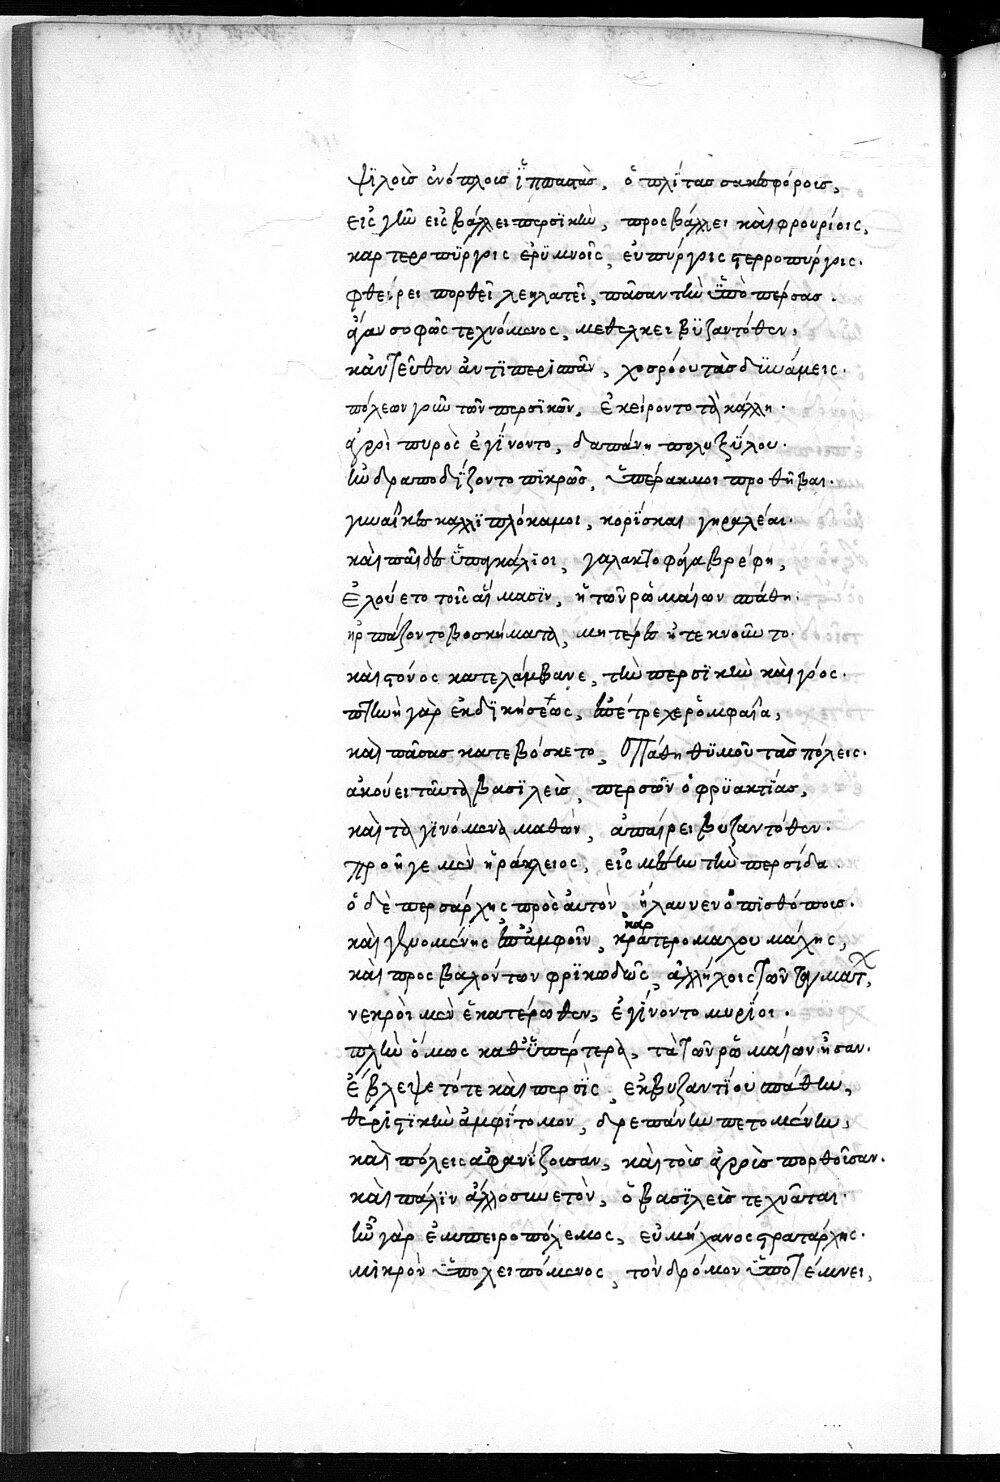 ψϊλοὶς ἐνόπλοις ἵππόταις, ὁπλίταις σακεφόροις,
εἰς γῆν εἰσβάλλει περσϊκὴν, προσβάλλει καὶ φρουρίοις,
καρτεροπύργοις ἐρυμνοῖς, εὐπύργοις στερροπύργοις.
φθείρει πορθεῖ λεηλατεῖ, πᾶσαν τὴν ὑπὸ πέρσας.
καὶ πανσόφως τεχνόμενος, μεθέλκει βϋζαντόθεν,
κἀντεῦθεν ἀντϊπερισπᾶν, χοσρόου τὰς δϋνάμεις.
πόλεων γοῦν τῶν περσϊκῶν, ἐκείροντο τὰ κάλλη.
ἀγροὶ πυρὸς ἐγίνοντο, δαπάνη πολυξύλου.
ἠνδραποδίζοντο πϊκρῶς, ὑπέρακμοι προσθῆβαι.
γυναῖκες καλλϊπλόκαμοι, κορΐσκαι γηραλέαι.
καὶ παῖδες ὑπαγκάλϊοι, γαλακτοφάγα βρέφη,
ἐλούετο τοῖς αἵμασϊν, ἡ τῶν ῥωμαίων πάθη.
ἡρπάζοντο βοσκήματα, μητέρες ἠτεκνοῦντο.
καὶ στόνος κατελάμβανε, τὴν περσϊκὴν καὶ γόος.
ποινὴ γὰρ ἐκδϊκήσεως, ἐπέτρεχε ῥομφαία,
καὶ πᾶσας κατεβόσκετο, σπάθη θϋμοῦ τὰς πόλεις.
ἀκούει ταῦτα βασϊλεὺς, περσῶν ὁ φρϋακτίας,
καὶ τὰ γϊνόμενα μαθὼν, ἀπαίρει βυζαντόθεν.
προῆγε μὲν ἡράκλειος, εἰς μέσην τὴν περσίδα.
ὁ δὲ περσάρχης πρὸς αὐτὸν, ἤλαυνεν ὀπϊσθόπους.
καὶ γενομένης ἐπ' ἀμφοῖν, καρτερομάχου μάχης,
καὶ προσβαλόντων φρϊκωδῶς, ἀλλήλοις τῶν ταγμάτων,
νεκροὶ μὲν ἑκατέρωθεν, ἐγίνοντο μυρίοι.
πλὴν ὅμως καθϋπέρτερα, τὰ τῶν ῥωμαίων ἦσαν.
ἔβλεψε τότε καὶ περσὶς, ἐκ βυζαντΐου σπάθην,
θερϊστϊκὴν ἀμφΐτομον, δρεπάνην πετομένην,
καὶ πόλεις ἀφανίζουσαν, καὶ τοὺς ἀγροὺς πορθοῦσαν.
καὶ πάλϊν ἄλλο συνετὸν, ὁ βασϊλεὺς τεχνᾶται.
ἦν γὰρ ἐμπειροπόλεμος, εὐμήχανος στρατάρχης.
μϊκρὸν ὑπολειπόμενος, τὸν δρόμον ὑποτέμνει,